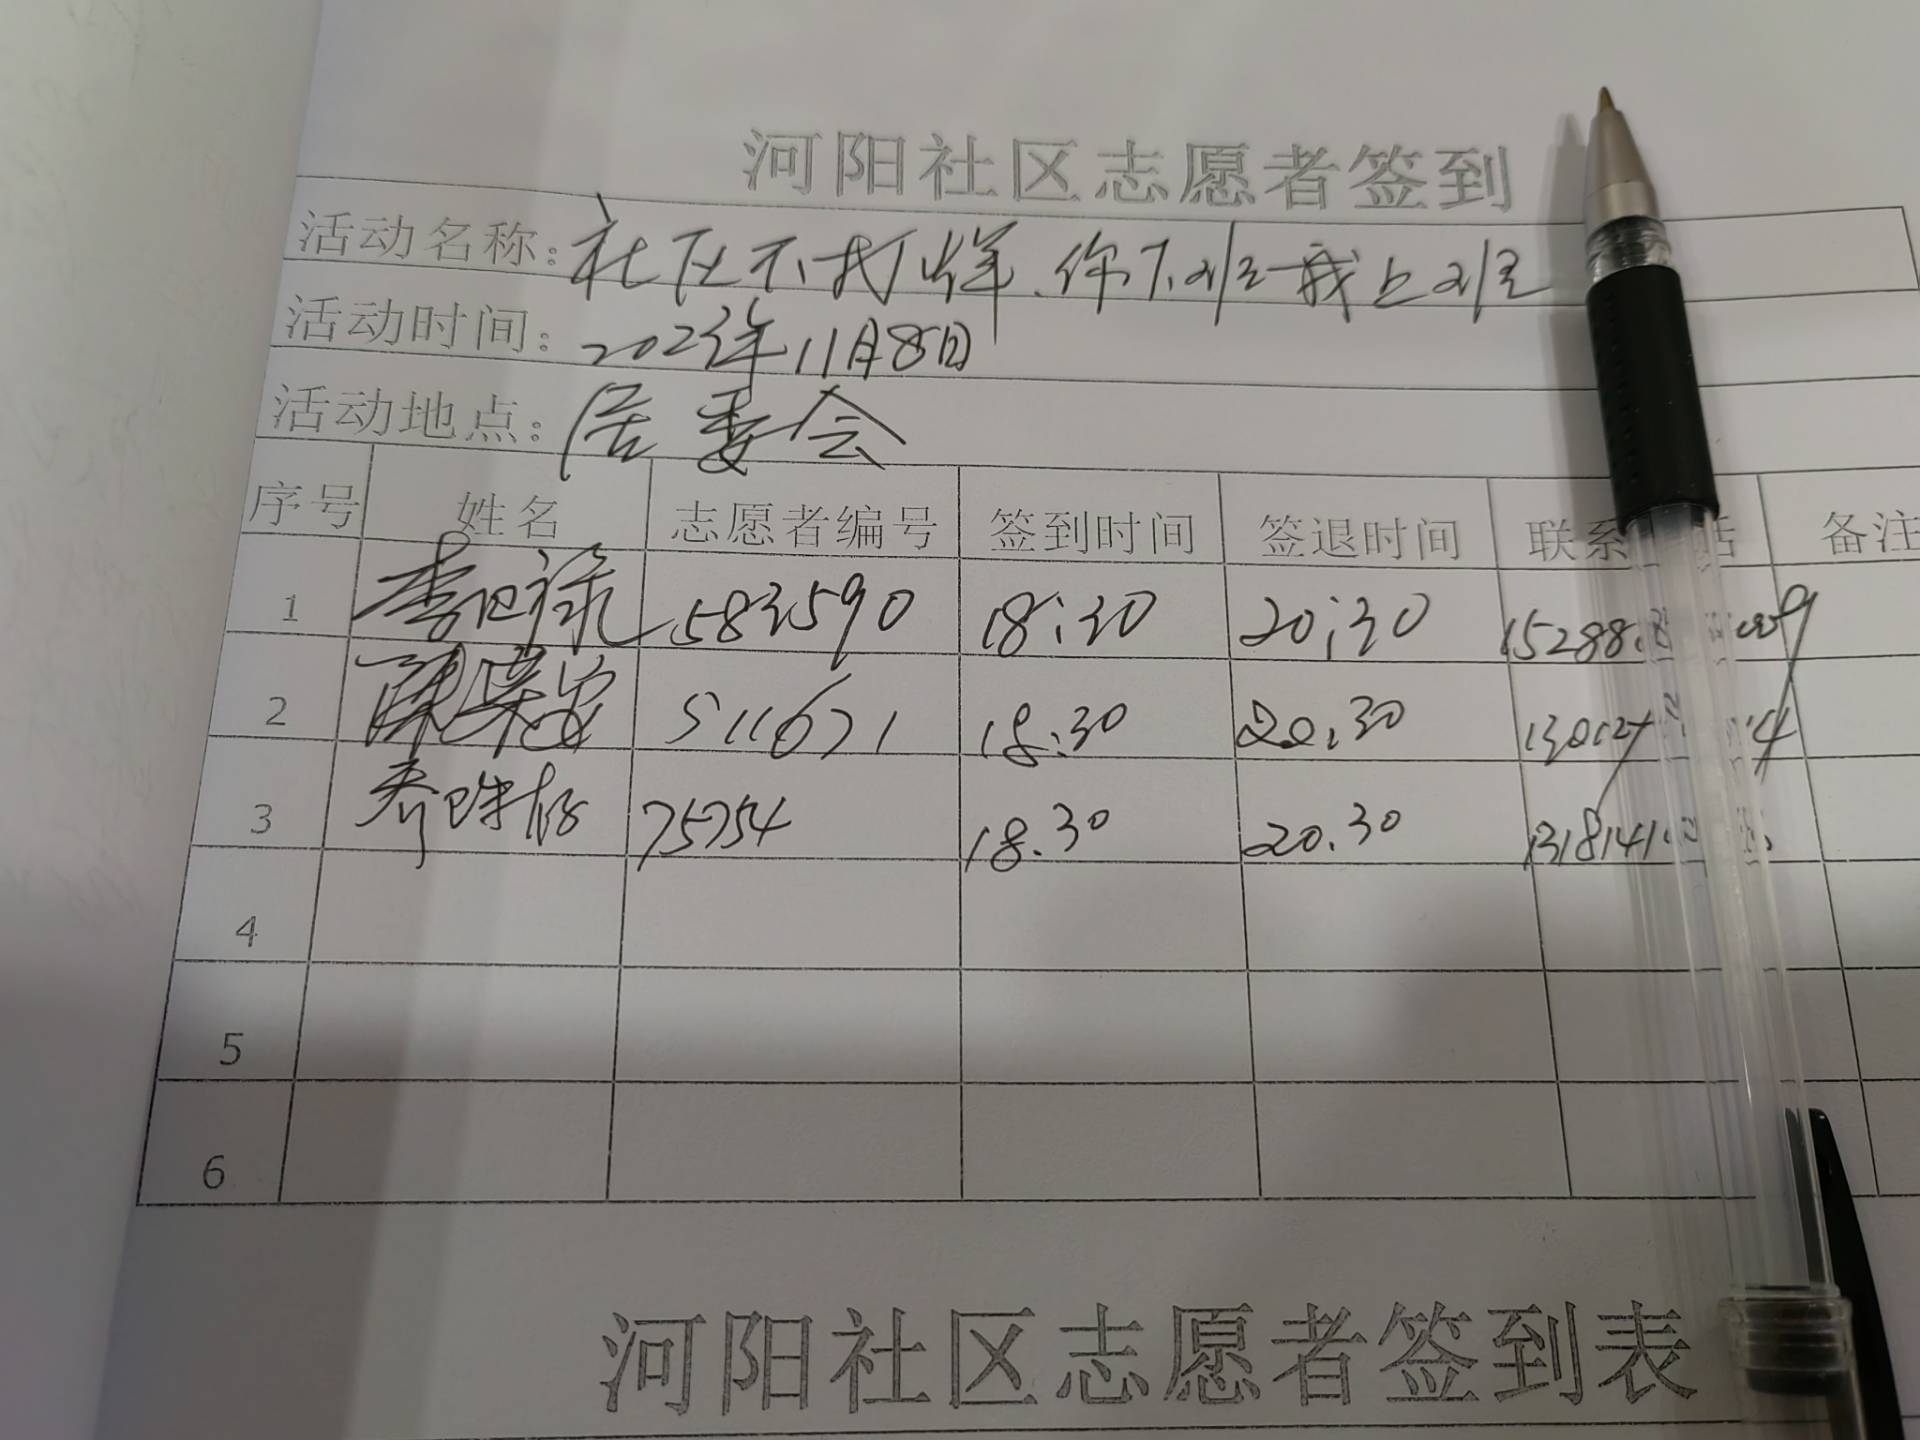 河阳社区志愿者签到
活动名称：社区不打烊、你下班我上班
活动时间：2023年11月8日
活动地点：居委会
序号 姓名 志愿者编号 签到时间 签退时间 联系 话 备注
1 583590 18:30 20:30
2 511671 18:30 20:30
3 75754 18.30 20.30
4
5
6
河阳社区志愿者签到表